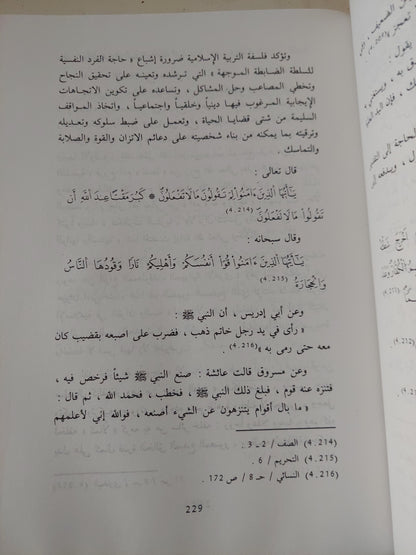 وتؤكد فلسفة التربية الإسلامية ضرورة إشباع « حاجة الفرد النفسية
للسلطة الضابطة الموجهة » التي ترشده وتعينه على تحقيق النجاح
وتخطي المصاعب وحل المشاكل ، وتساعده على تكوين الاتجاهات
الإيجابية المرغوب فيها دينياً وخلقياً واجتماعياً ، واتخاذ المواقف
السليمة من شتى قضايا الحياة ، وتعمل على ضبط سلوكه وتعديله
وترقيته بما يمكنه من بناء شخصيته على دعائم الاتزان والقوة والصلابة
والتماسك .
قال تعالى :
يَـٰٓأَيُّهَا ٱلَّذِينَ ءَامَنُواْ لِمَ تَقُولُونَ مَالَا تَفْعَلُونَ * كَبُرَ مَقْتًا عِندَ ٱللَّهِ أَن
تَقُولُواْ مَا لَا تَفْعَلُونَ (4.214)
وقال سبحانه :
يَـٰٓأَيُّهَا ٱلَّذِينَ ءَامَنُواْ قُوٓاْ أَنفُسَكُمْ وَأَهْلِيكُمْ نَارًا وَقُودُهَا ٱلنَّاسُ
وَٱلْحِجَارَةُ (4.215)
وعن أبي إدريس ، أن النبي ﷺ :
« رأى في يد رجل خاتم ذهب ، فضرب على اصبعه بقضيب كان
معه حتى رمى به » (4.216) .
وعن مسروق قالت عائشة : صنع النبي ﷺ شيئاً فرخص فيه ،
فتنزه عنه قوم ، فبلغ ذلك النبي ﷺ ، فخطب ، فحمد الله ، ثم قال :
« ما بال أقوام يتنزهون عن الشيء أصنعه ، فوالله إني لأعلمهم
(4.214) الصف / 2 ـ 3 .
(4.215) التحريم / 6 .
(4.216) النسائي / حـ 8 / ص 172 .
229